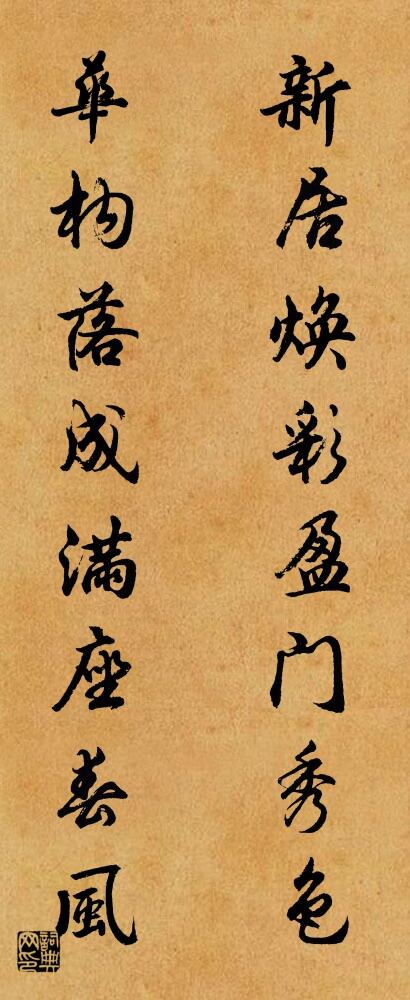 新居焕彩盈门秀色
華构落成满座春風
詞典网印